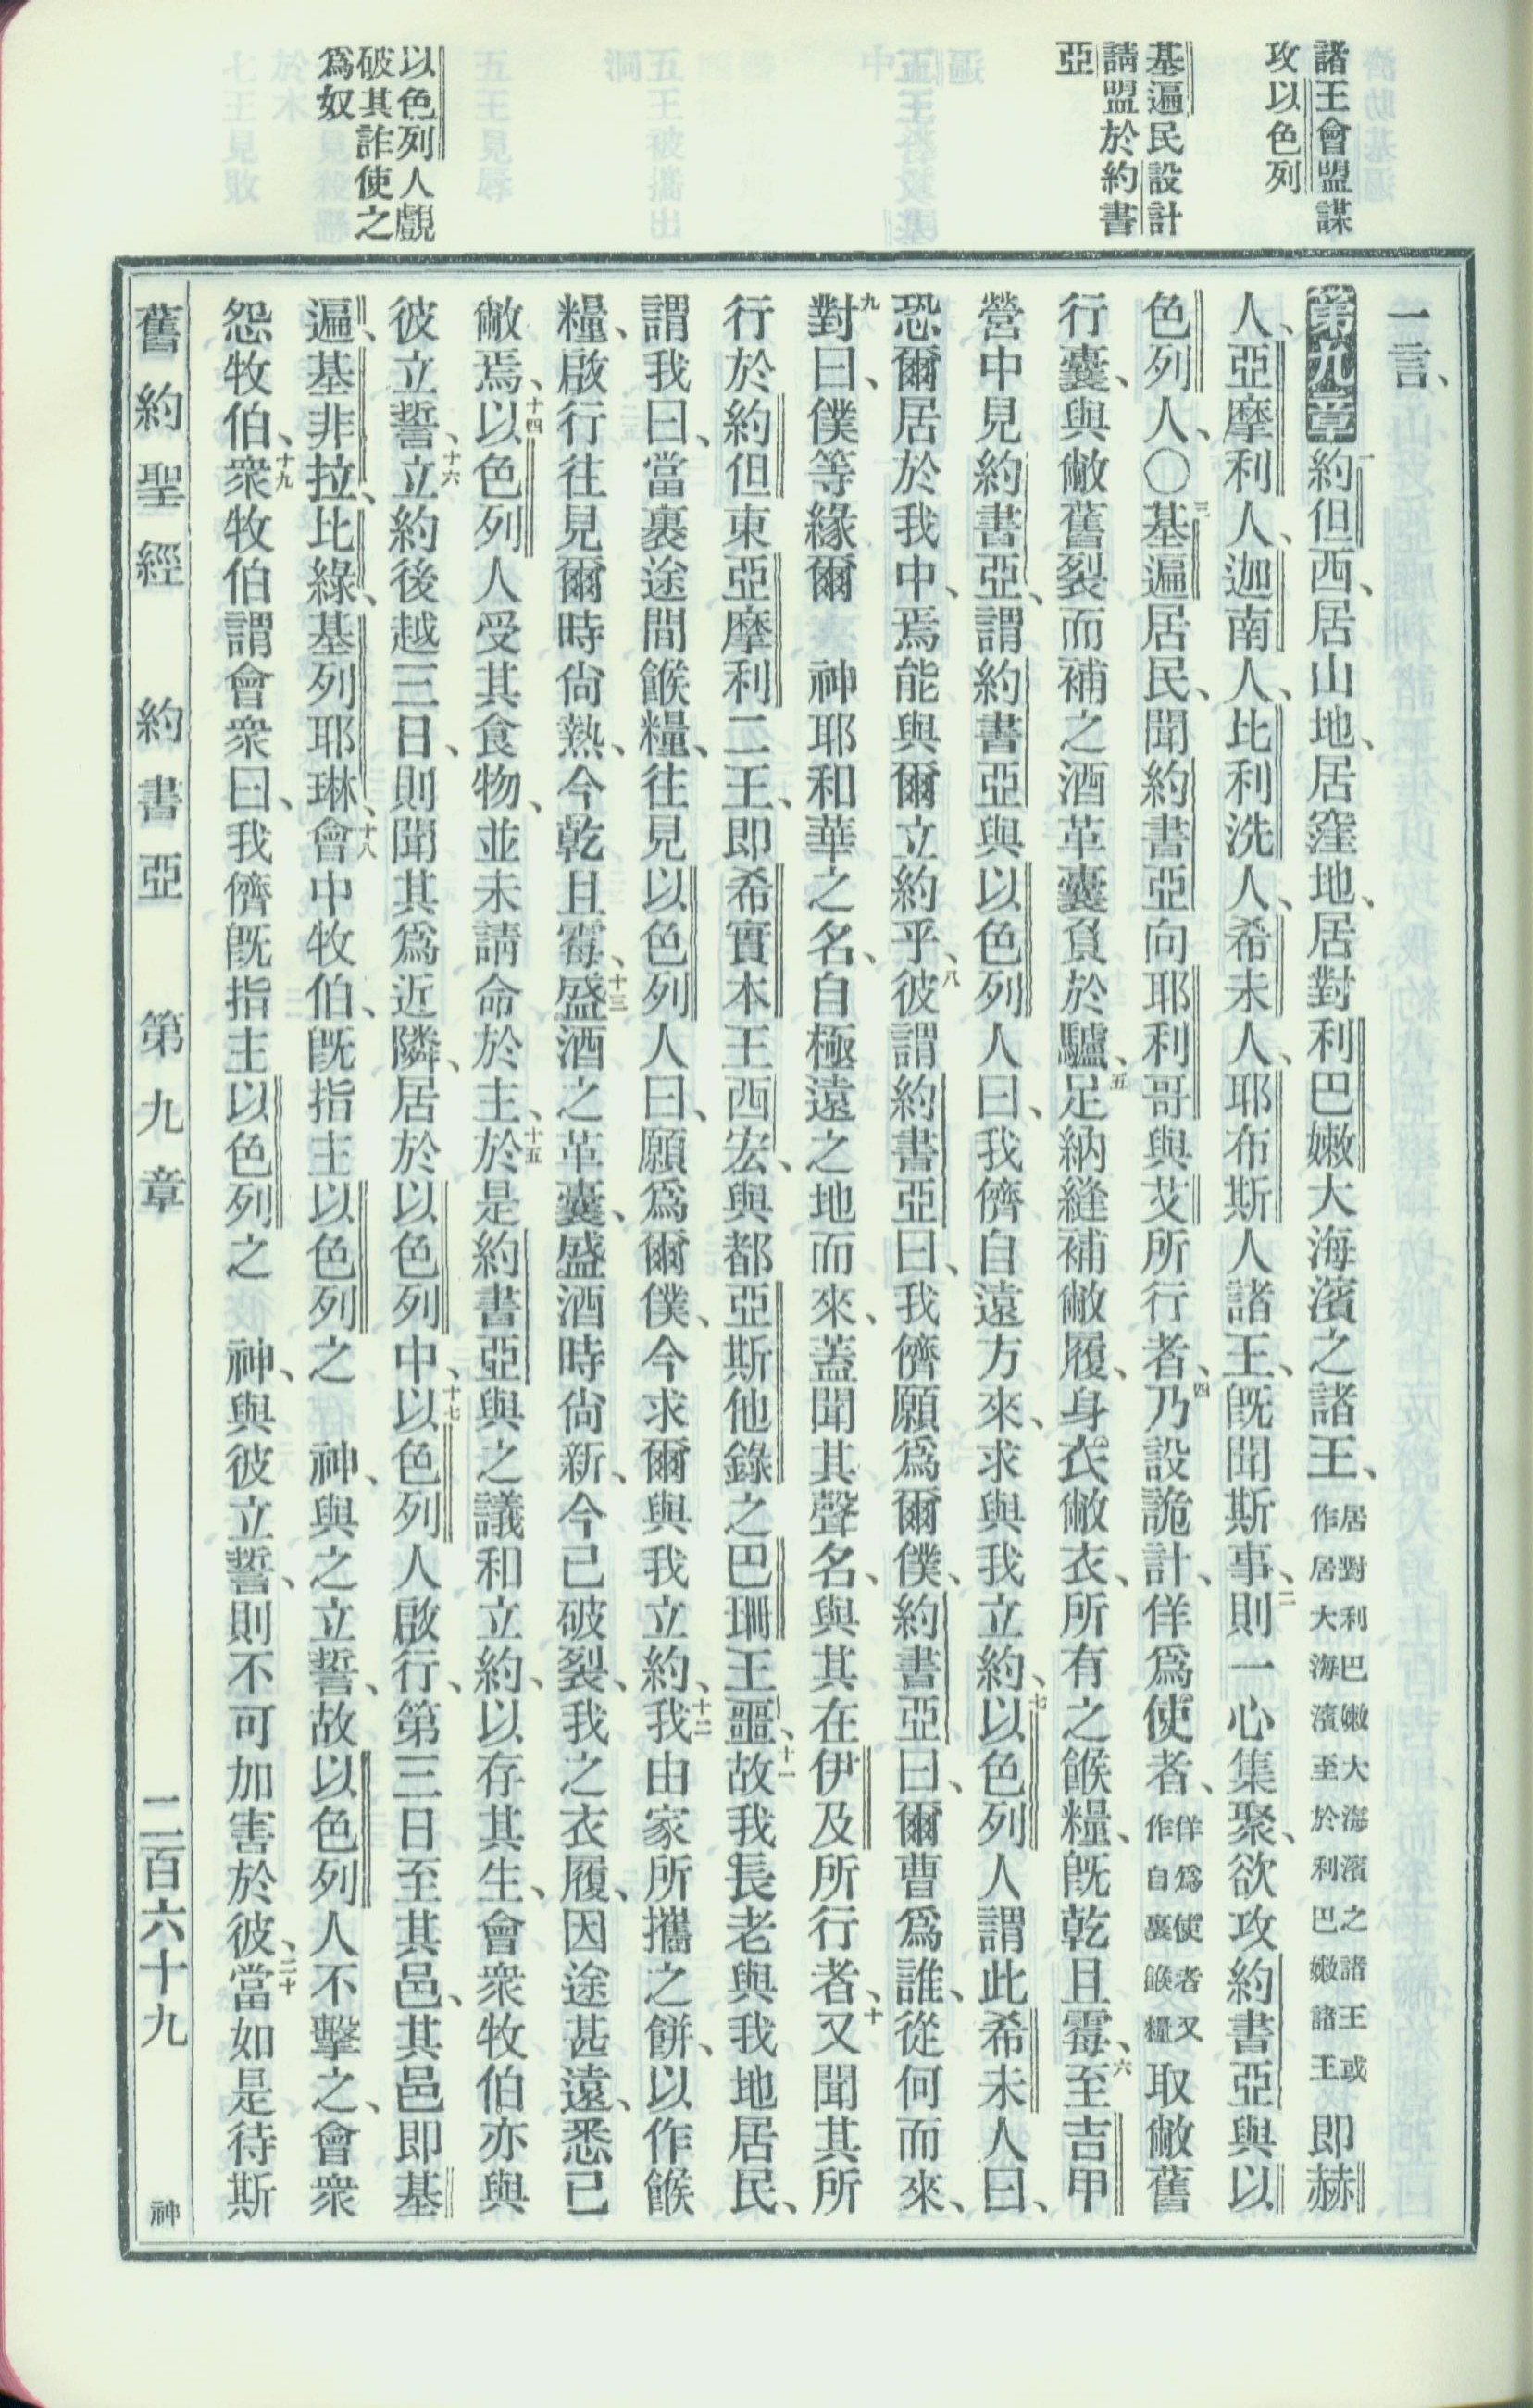 諸王會盟謀
攻以色列
基遍民設計
請盟於約書
亞
以色列人覰
破其詐使之
爲奴
一言、
第九章 一約但西、居山地、居窪地、居對利巴嫩大海濱之諸王、居對利巴嫩大海濱之諸王或作居大海濱至於利巴嫩諸王即赫
人、亞摩利人、迦南人、比利洗人、希未人、耶布斯人諸王、旣聞斯事、二則一心集聚、欲攻約書亞與以
色列人、〇三基遍居民、聞約書亞向耶利哥與艾所行者、四乃設詭計、佯爲使者、佯爲使者又作自裹餱糧取敝舊
行囊、與敝舊裂而補之酒革囊負於驢、五足納縫補敝履、身衣敝衣、所有之餱糧、旣乾且霉、六至吉甲
營中見約書亞、謂約書亞與以色列人曰、我儕自遠方來、求與我立約、七以色列人謂此希未人曰、
恐爾居於我中、焉能與爾立約乎、八彼謂約書亞曰、我儕願爲爾僕、約書亞曰、爾曹爲誰、從何而來、
九對曰、僕等緣爾 神耶和華之名、自極遠之地而來、蓋聞其聲名、與其在伊及所行者、十又聞其所
行於約但東亞摩利二王、即希實本王西宏、與都亞斯他錄之巴珊王噩、十一故我長老與我地居民、
謂我曰、當裹途間餱糧、往見以色列人曰、願爲爾僕、今求爾與我立約、十二我由家所攜之餅、以作餱
糧、啟行往見爾時尙熱、今乾且霉、十三盛酒之革囊、盛酒時尙新、今已破裂、我之衣履、因途甚遠、悉已
敝焉、十四以色列人受其食物、並未請命於主、十五於是約書亞與之議和立約、以存其生、會衆牧伯亦與
彼立誓、十六立約後越三日、則聞其爲近隣、居於以色列中、十七以色列人啟行、第三日至其邑、其邑即基
遍、基非拉、比綠、基列耶琳、十八會中牧伯、旣指主以色列之 神、與之立誓、故以色列人不擊之、會衆
怨牧伯、十九衆牧伯謂會衆曰、我儕旣指主以色列之 神、與彼立誓、則不可加害於彼、二十當如是待斯
舊約聖經 約書亞 第九章 二百六十九 神